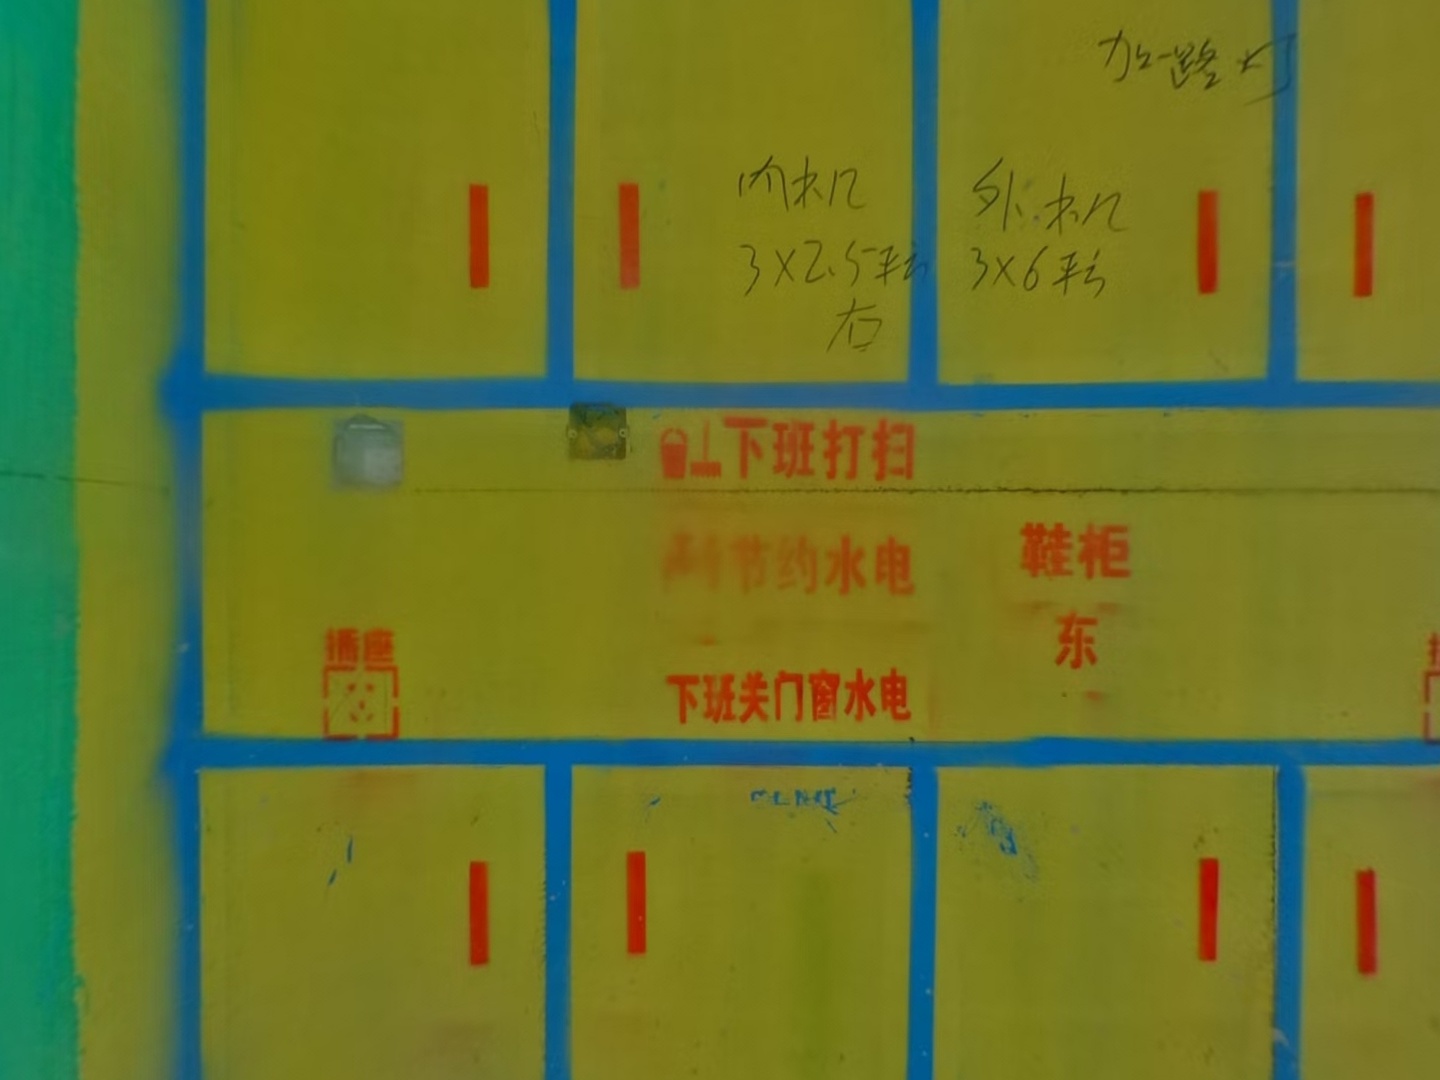 加一路灯
内机
3X2.5平方
右
外机
3X6平方
下班打扫
节约水电
鞋柜
东
插座
下班关门窗水电